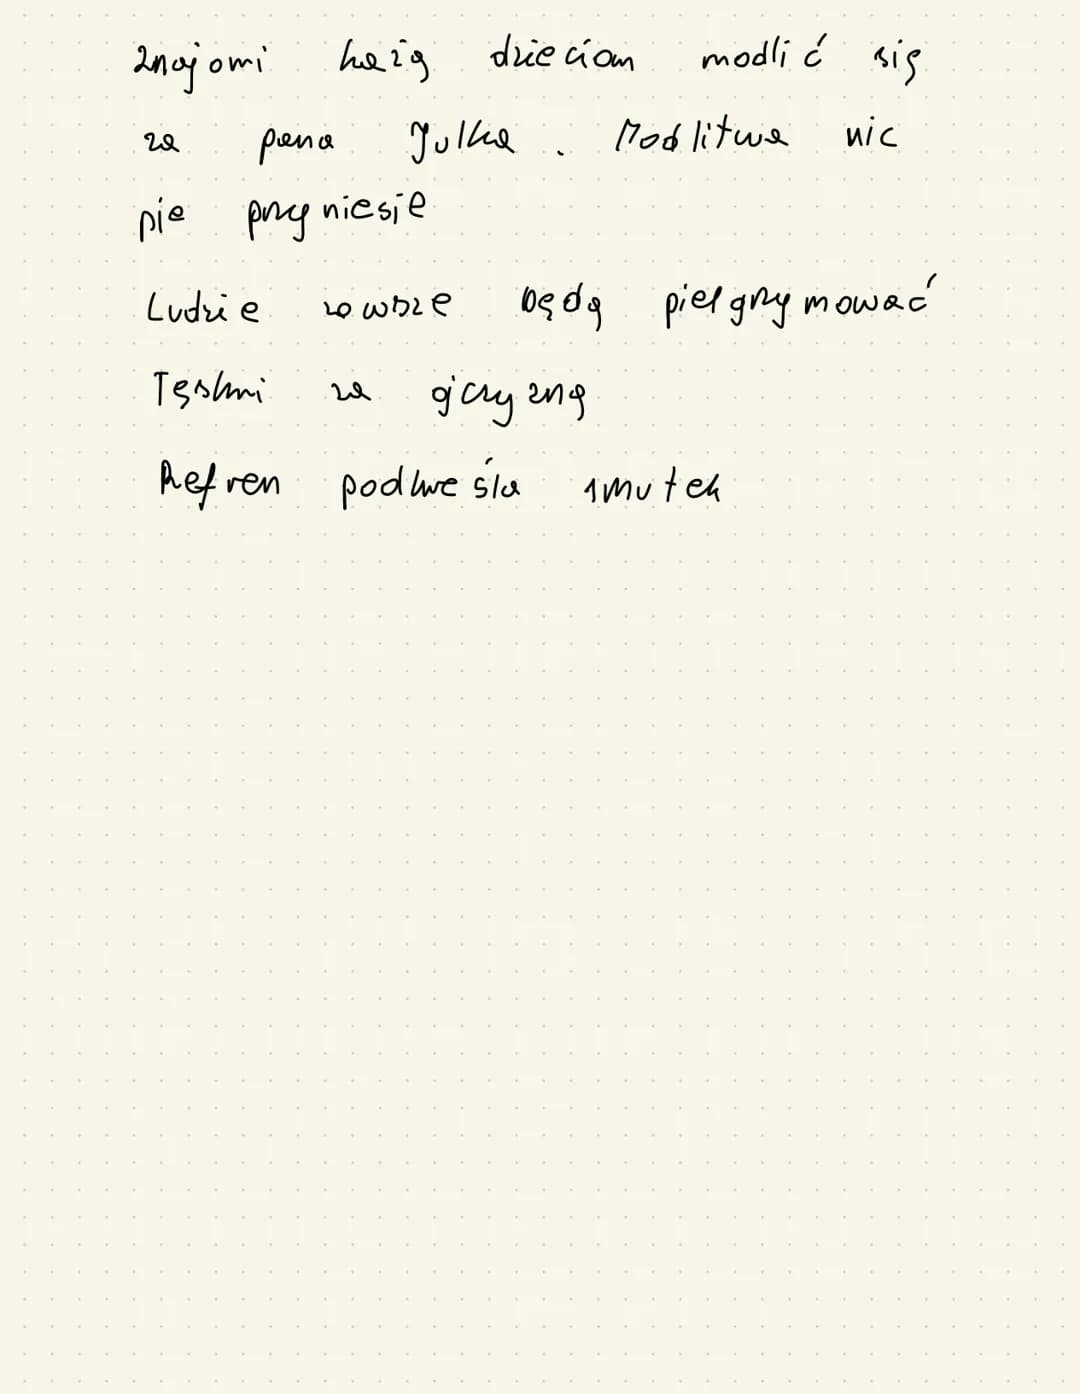 znajomi każą dzieciom modlić się
za pana Julka. Modlitwa nic
nie przyniesie
Ludzie zawsze będą pielgrzymować
Tęskni za ojczyzną
Refren podkreśla smutek